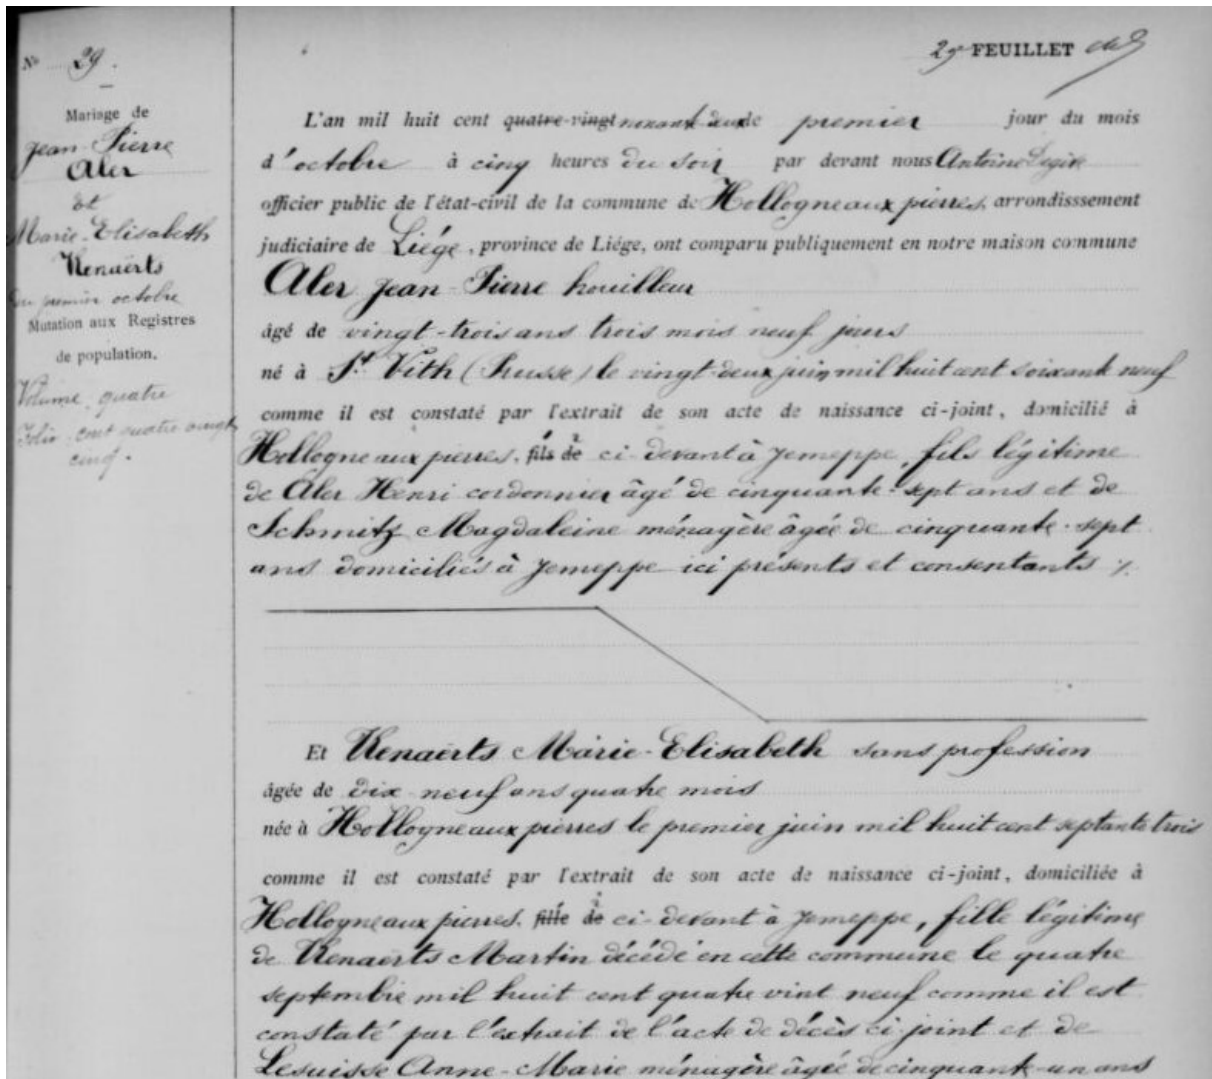 Nº 29.
29e FEUILLET
Mariage de
Jean-Pierre
Aler
et
Marie-Elisabeth
Renaerts
Du premier octobre
Mutation aux Registres
de population.
Volume quatre
Folio cent quatre vingt
cinq.
L'an mil huit cent quatre-vingt nonante deux le premier jour du mois
d'octobre à cinq heures du soir par devant nous Antoine
officier public de l'état-civil de la commune de Hollogne aux pierres, arrondisssement
judiciaire de Liége, province de Liége, ont comparu publiquement en notre maison commune
Aler Jean-Pierre houilleur
âgé de vingt-trois ans trois mois neuf jours
né à St Vith (Prusse) le vingt-deux juin mil huit cent soixante neuf
comme il est constaté par l'extrait de son acte de naissance ci-joint, domicilié à
Hollogne aux pierres, fils de ci-devant à Jemeppe, fils légitime
de Aler Henri cordonnier âgé de cinquante-sept ans et de
Schmitz Magdaleine ménagère âgée de cinquante-sept
ans domiciliés à Jemeppe ici présents et consentants %.
Et Renaerts Marie-Elisabeth sans profession
âgée de dix-neuf ans quatre mois
née à Hollogne aux pierres le premier juin mil huit cent septante trois
comme il est constaté par l'extrait de son acte de naissance ci-joint, domiciliée à
Hollogne aux pierres, fille de ci-devant à Jemeppe, fille légitime
de Renaerts Martin décédé en cette commune le quatre
septembre mil huit cent quatre vint neuf comme il est
constaté par l'extrait de l'acte de décès ci-joint et de
Lesuisse Anne-Marie ménagère âgée de cinquante-un ans